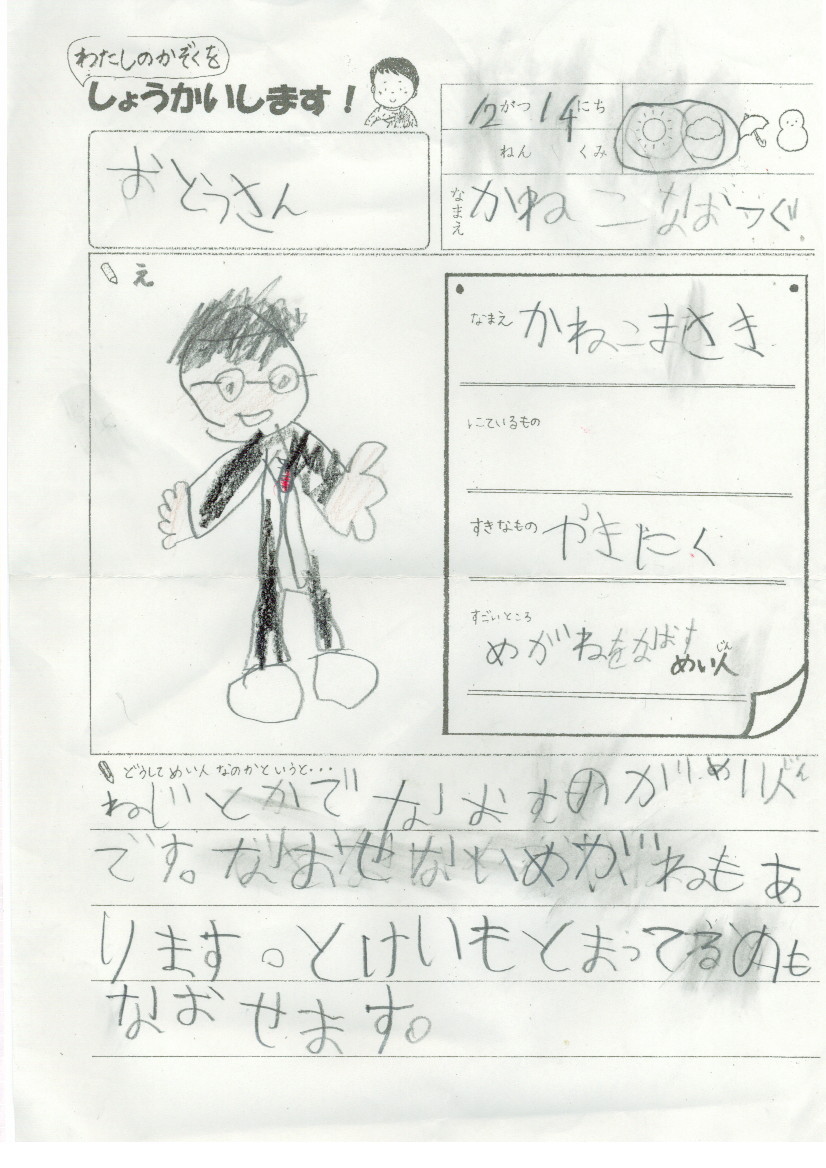 わたしのかぞくを
しょうかいします！
12がつ14にち
ねん くみ
おとうさん
なまえ かねこ なおつぐ
え
なまえ かねこまさき
にているもの
すきなもの やきにく
すごいところ
めがねをなおす
めい人
じん
どうしてめい人なのかというと・・・
ねじとかでなおすのがめい人
じん
です。なおせないめがねもあ
ります。とけいもとまってるのも
なおせます。